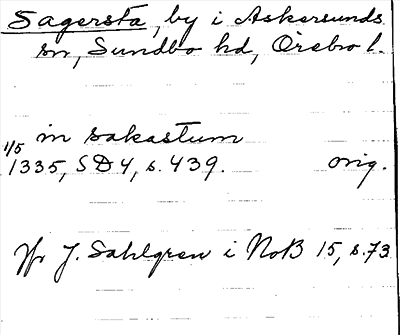 Sagersta, by i Askersunds
sn, Sundbo hd, Örebro l.
in sakastum
1/5 1335, SD 4, s. 439. orig.
Jfr J. Sahlgren i NoB 15, s. 73